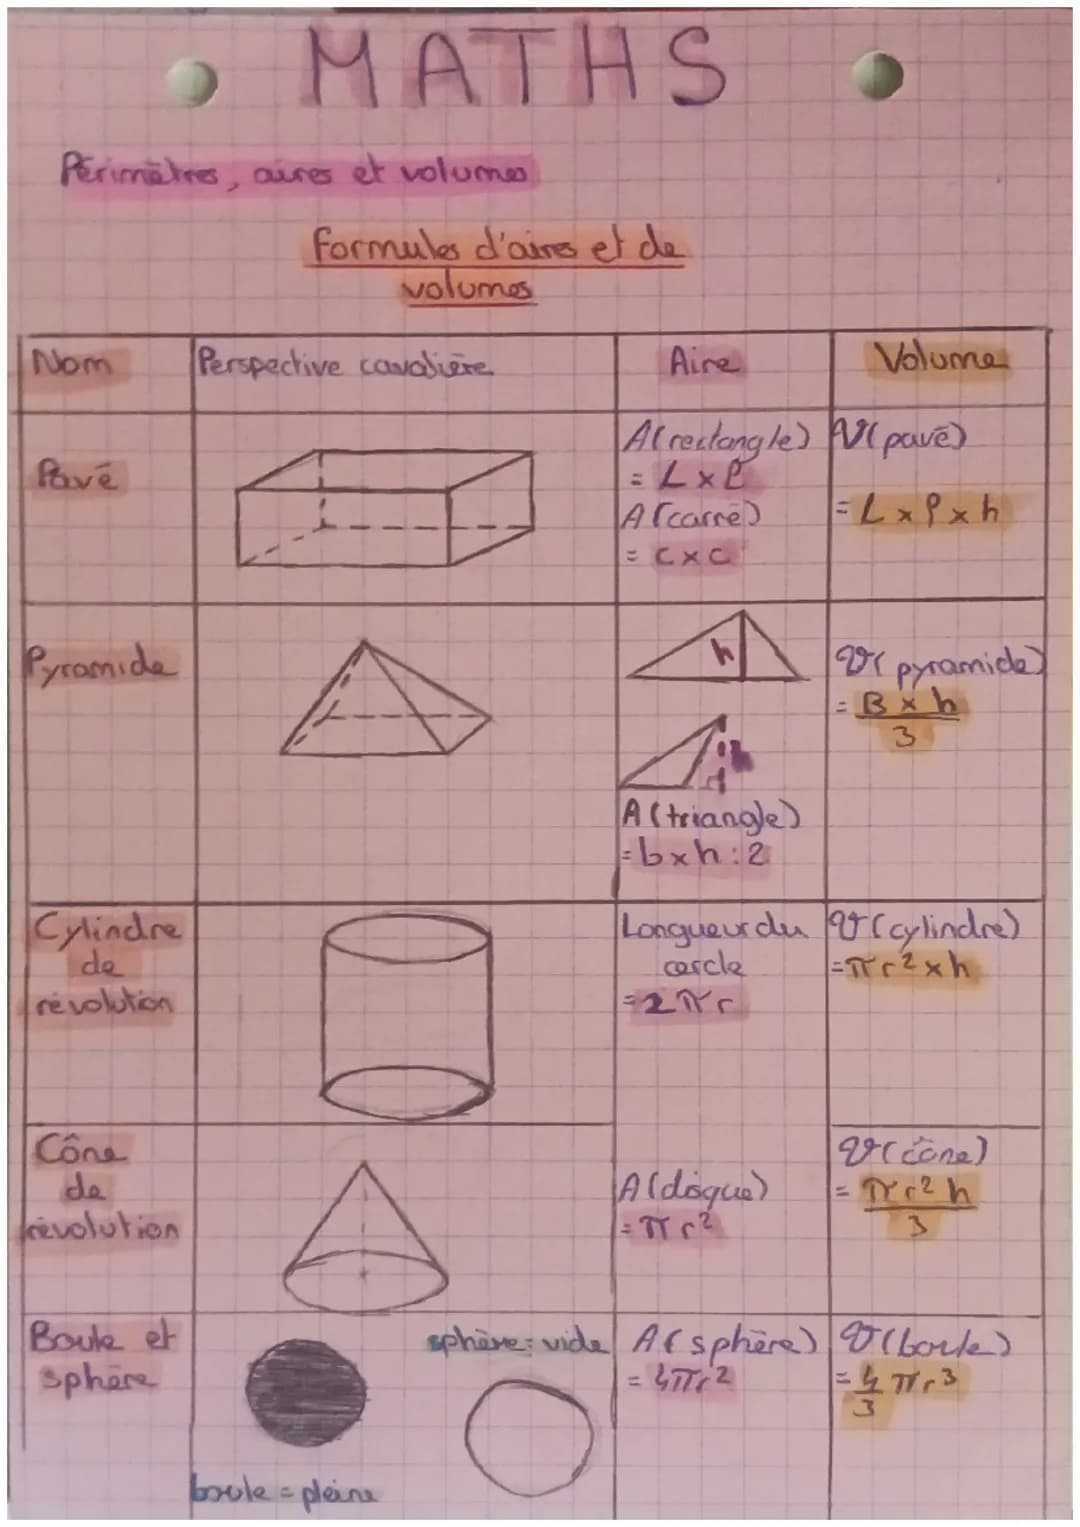 MATHS
Périmètres, aires et volumes
Formules d'aires et de
volumes
Nom
Perspective cavalière
Aire
Volume
Pavé
A(rectangle)
= L x l
A(carré)
= c x c
V(pavé)
= L x l x h
Pyramide
h
h
A(triangle)
= b x h : 2
V(pyramide)
= B x h
3
Cylindre
de
révolution
Longueur du
cercle
= 2πr
V(cylindre)
= πr² x h
Cône
de
révolution
A(disque)
= πr²
V(cône)
= πr²h
3
Boule et
sphère
sphère = vide
boule = pleine
A(sphère)
= 4πr²
V(boule)
= 4 πr³
3